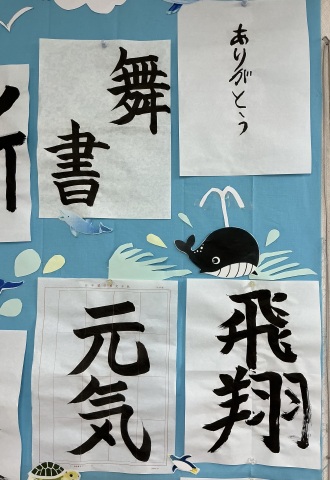 ありがとう
舞
書
飛翔
元気